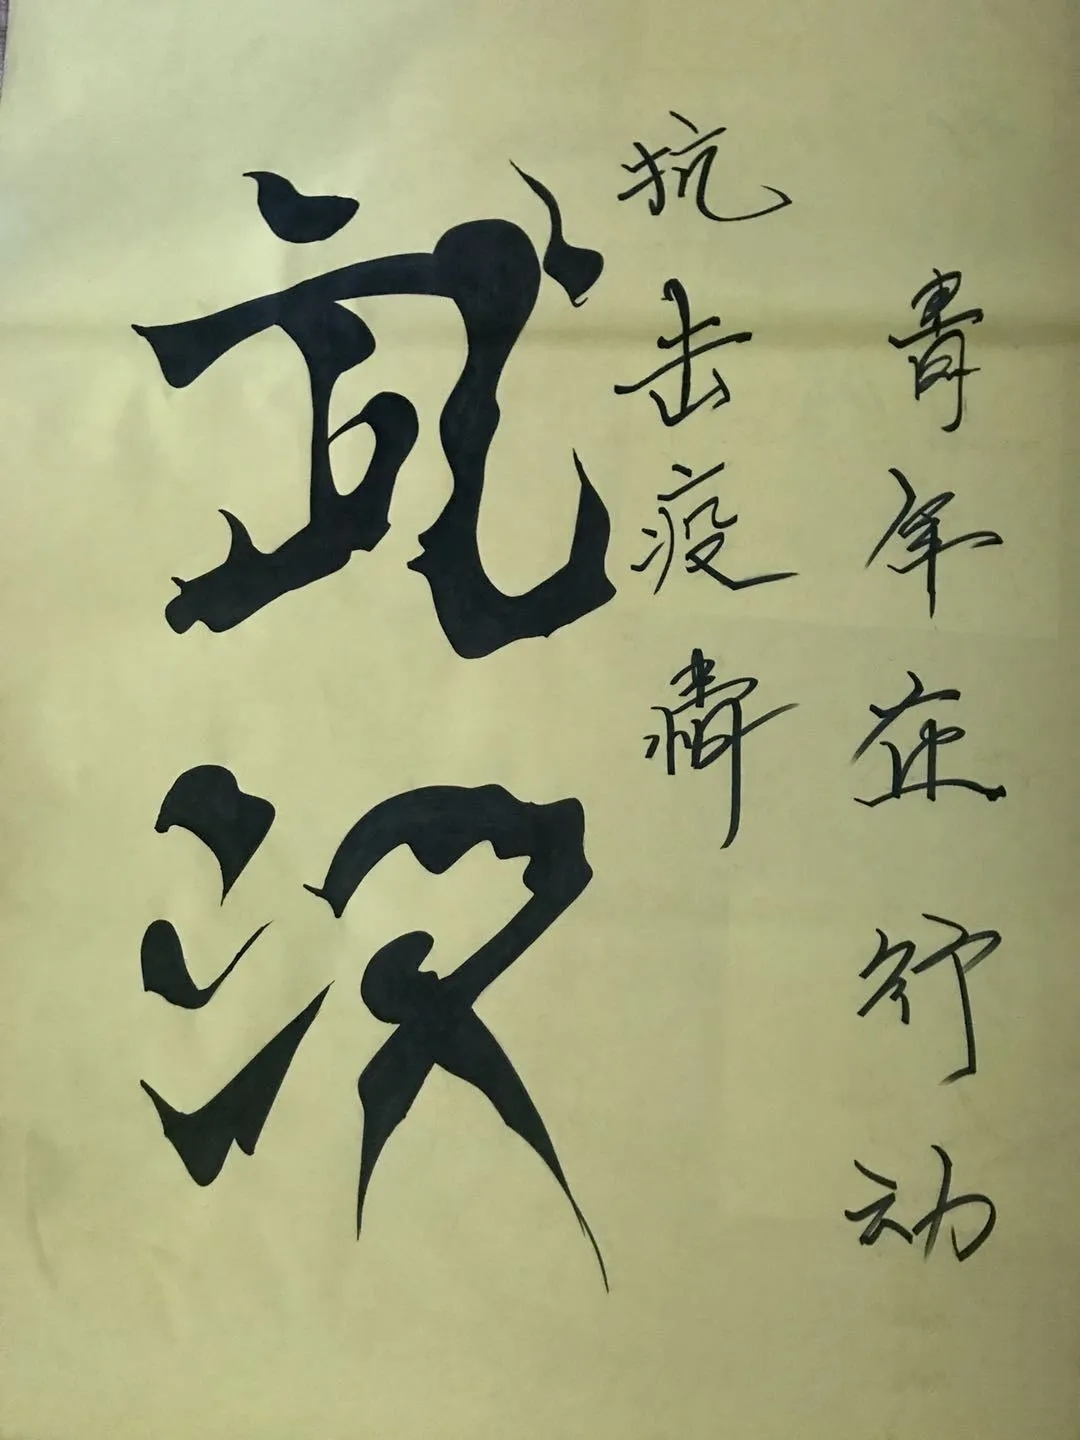 青年在行动
抗击疫情
武汉